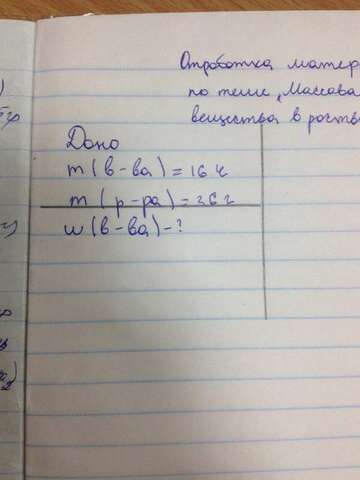 Отработка матер
по теме „Массовая
вещества в раство
Дано
m (в-ва) = 16 г
m (р-ра) = 36 г
w (в-ва) - ?